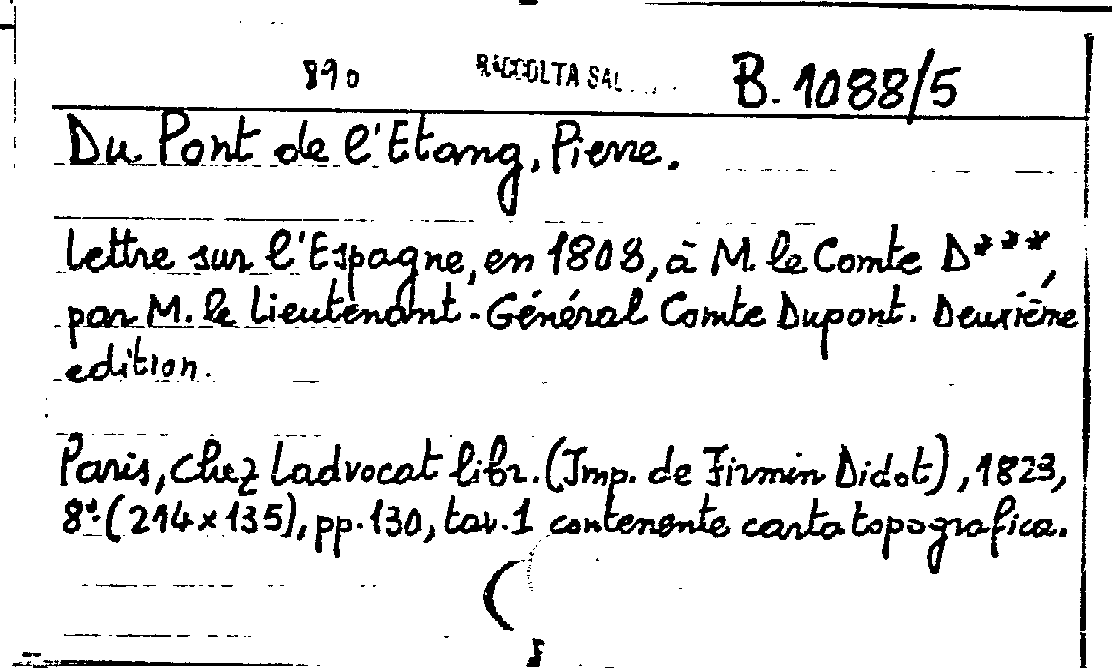 890 RACCOLTA B. 1088/5
Du Pont de l'Etang, Pierre.
Lettre sur l'Espagne, en 1808, à M. le Comte D***,
par M. le Lieutenant-Général Comte Dupont. Deuxième
edition.
Paris, chez Ladvocat libr. (Imp. de Firmin Didot), 1823,
8º (214x135), pp. 130, tav. 1 contenente carta topografica.